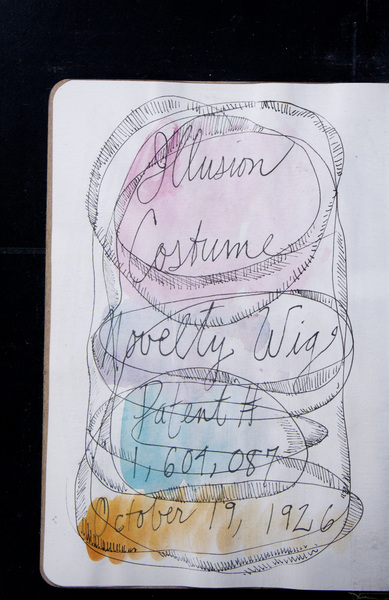 Illusion
Costume
Novelty Wigs
Patent #
1,604,087
October 19, 1926